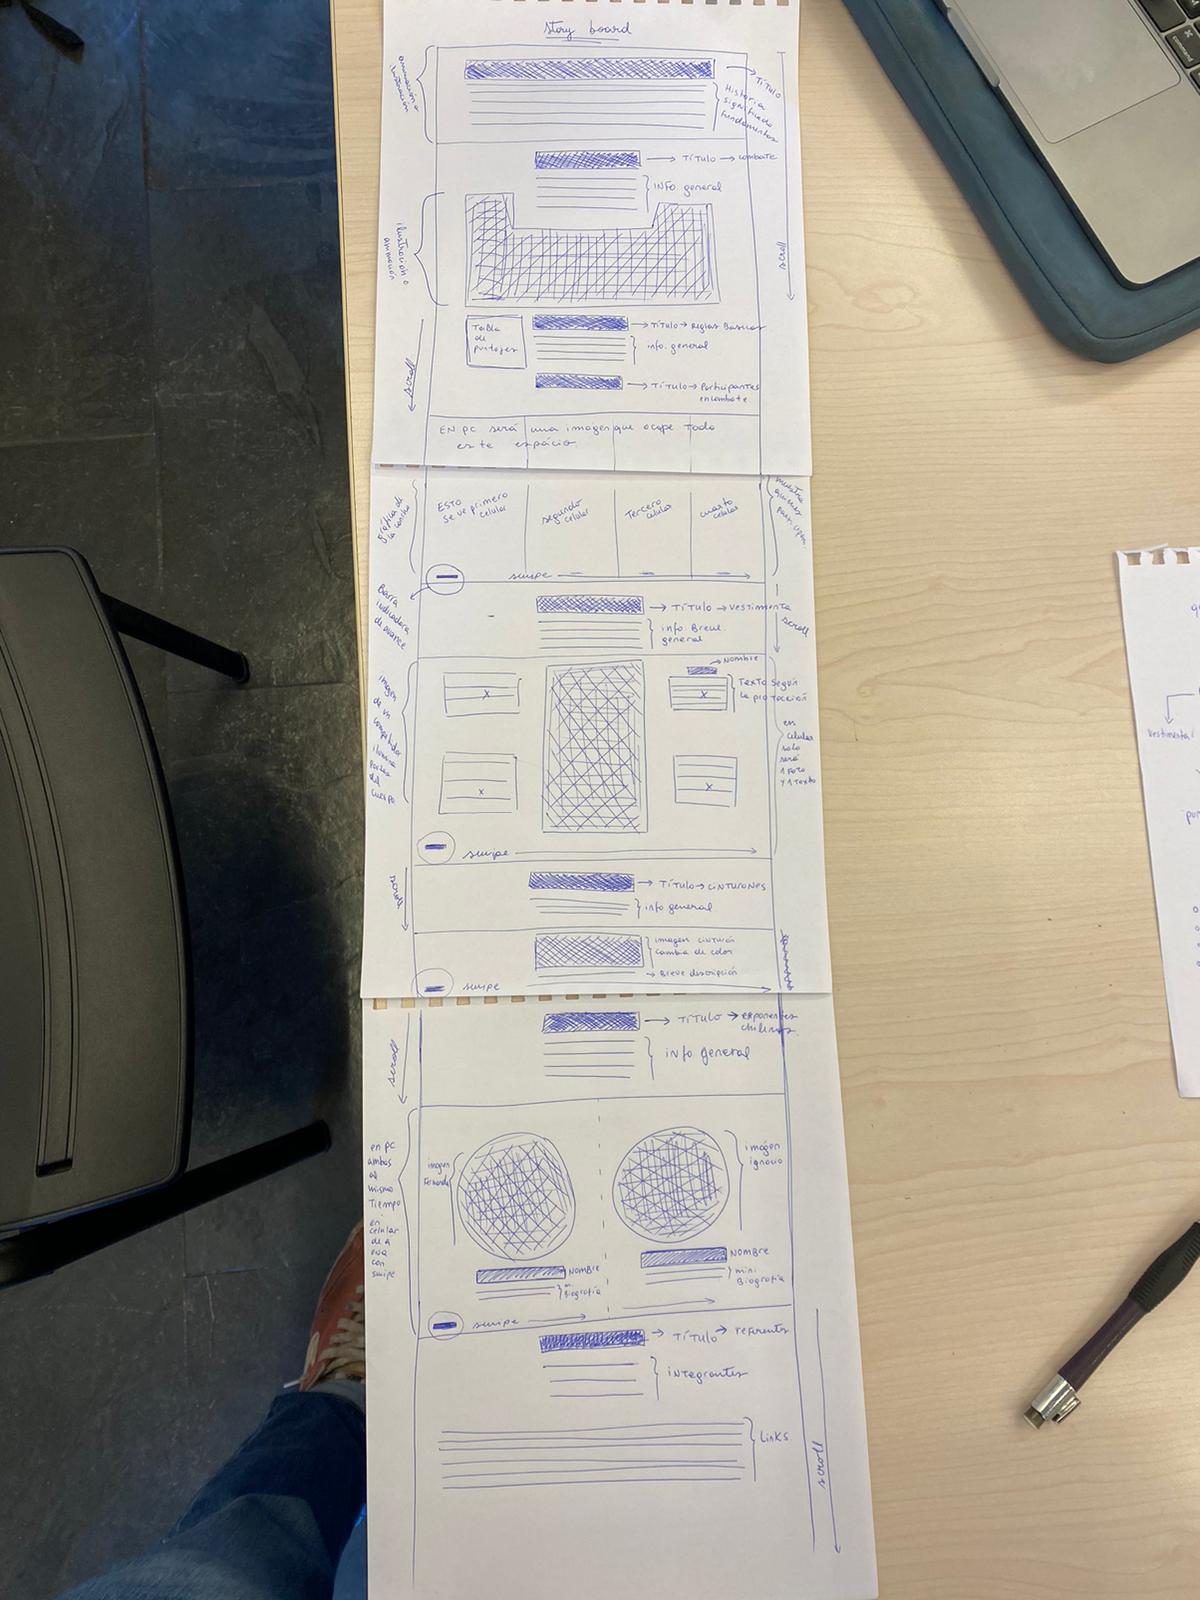 Story board
animación o
ilustración
Título
Historia
significado
Fundamentos
Título → combate
INFO general
ilustración o
animación
scroll
Tabla
de
puntajes
Título → Reglas Basicas
info. general
scroll
Título → Participantes
en combate
EN PC será una imágen que ocupe todo
este espácio
gráfica de
la cancha
ESTO
se ve primero
celular
segundo
celular
Tercero
celular
cuarto
celular
muestra
swipe
Barra
indicadora
de avance
Título → vestimenta
scroll
info. Breve.
general
Nombre
Texto según
la protección
x
x
x
x
imagen
de un
competidor
ilumina
partes
del
cuerpo
en
celular
solo
será
1 Foto
y 1 Texto
swipe
scroll
Título → cinturones
info general
imagen cinturón
cambia de color
→ Breve descripción
swipe
Título → exponentes
chilenos
info general
scroll
en PC
ambos
al
mismo
Tiempo
en
celular
de a
una
con
swipe
imagen
Fernanda
imágen
ignacio
Nombre
Biografía
Nombre
mini
Biografía
swipe
Título → referentes
integrantes
Links
scroll
vestimenta